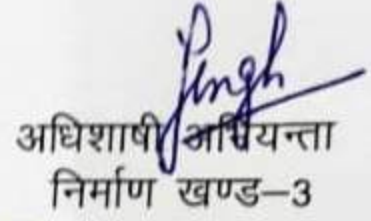 Singh
अधिशाषी अभियन्ता
निर्माण खण्ड–3